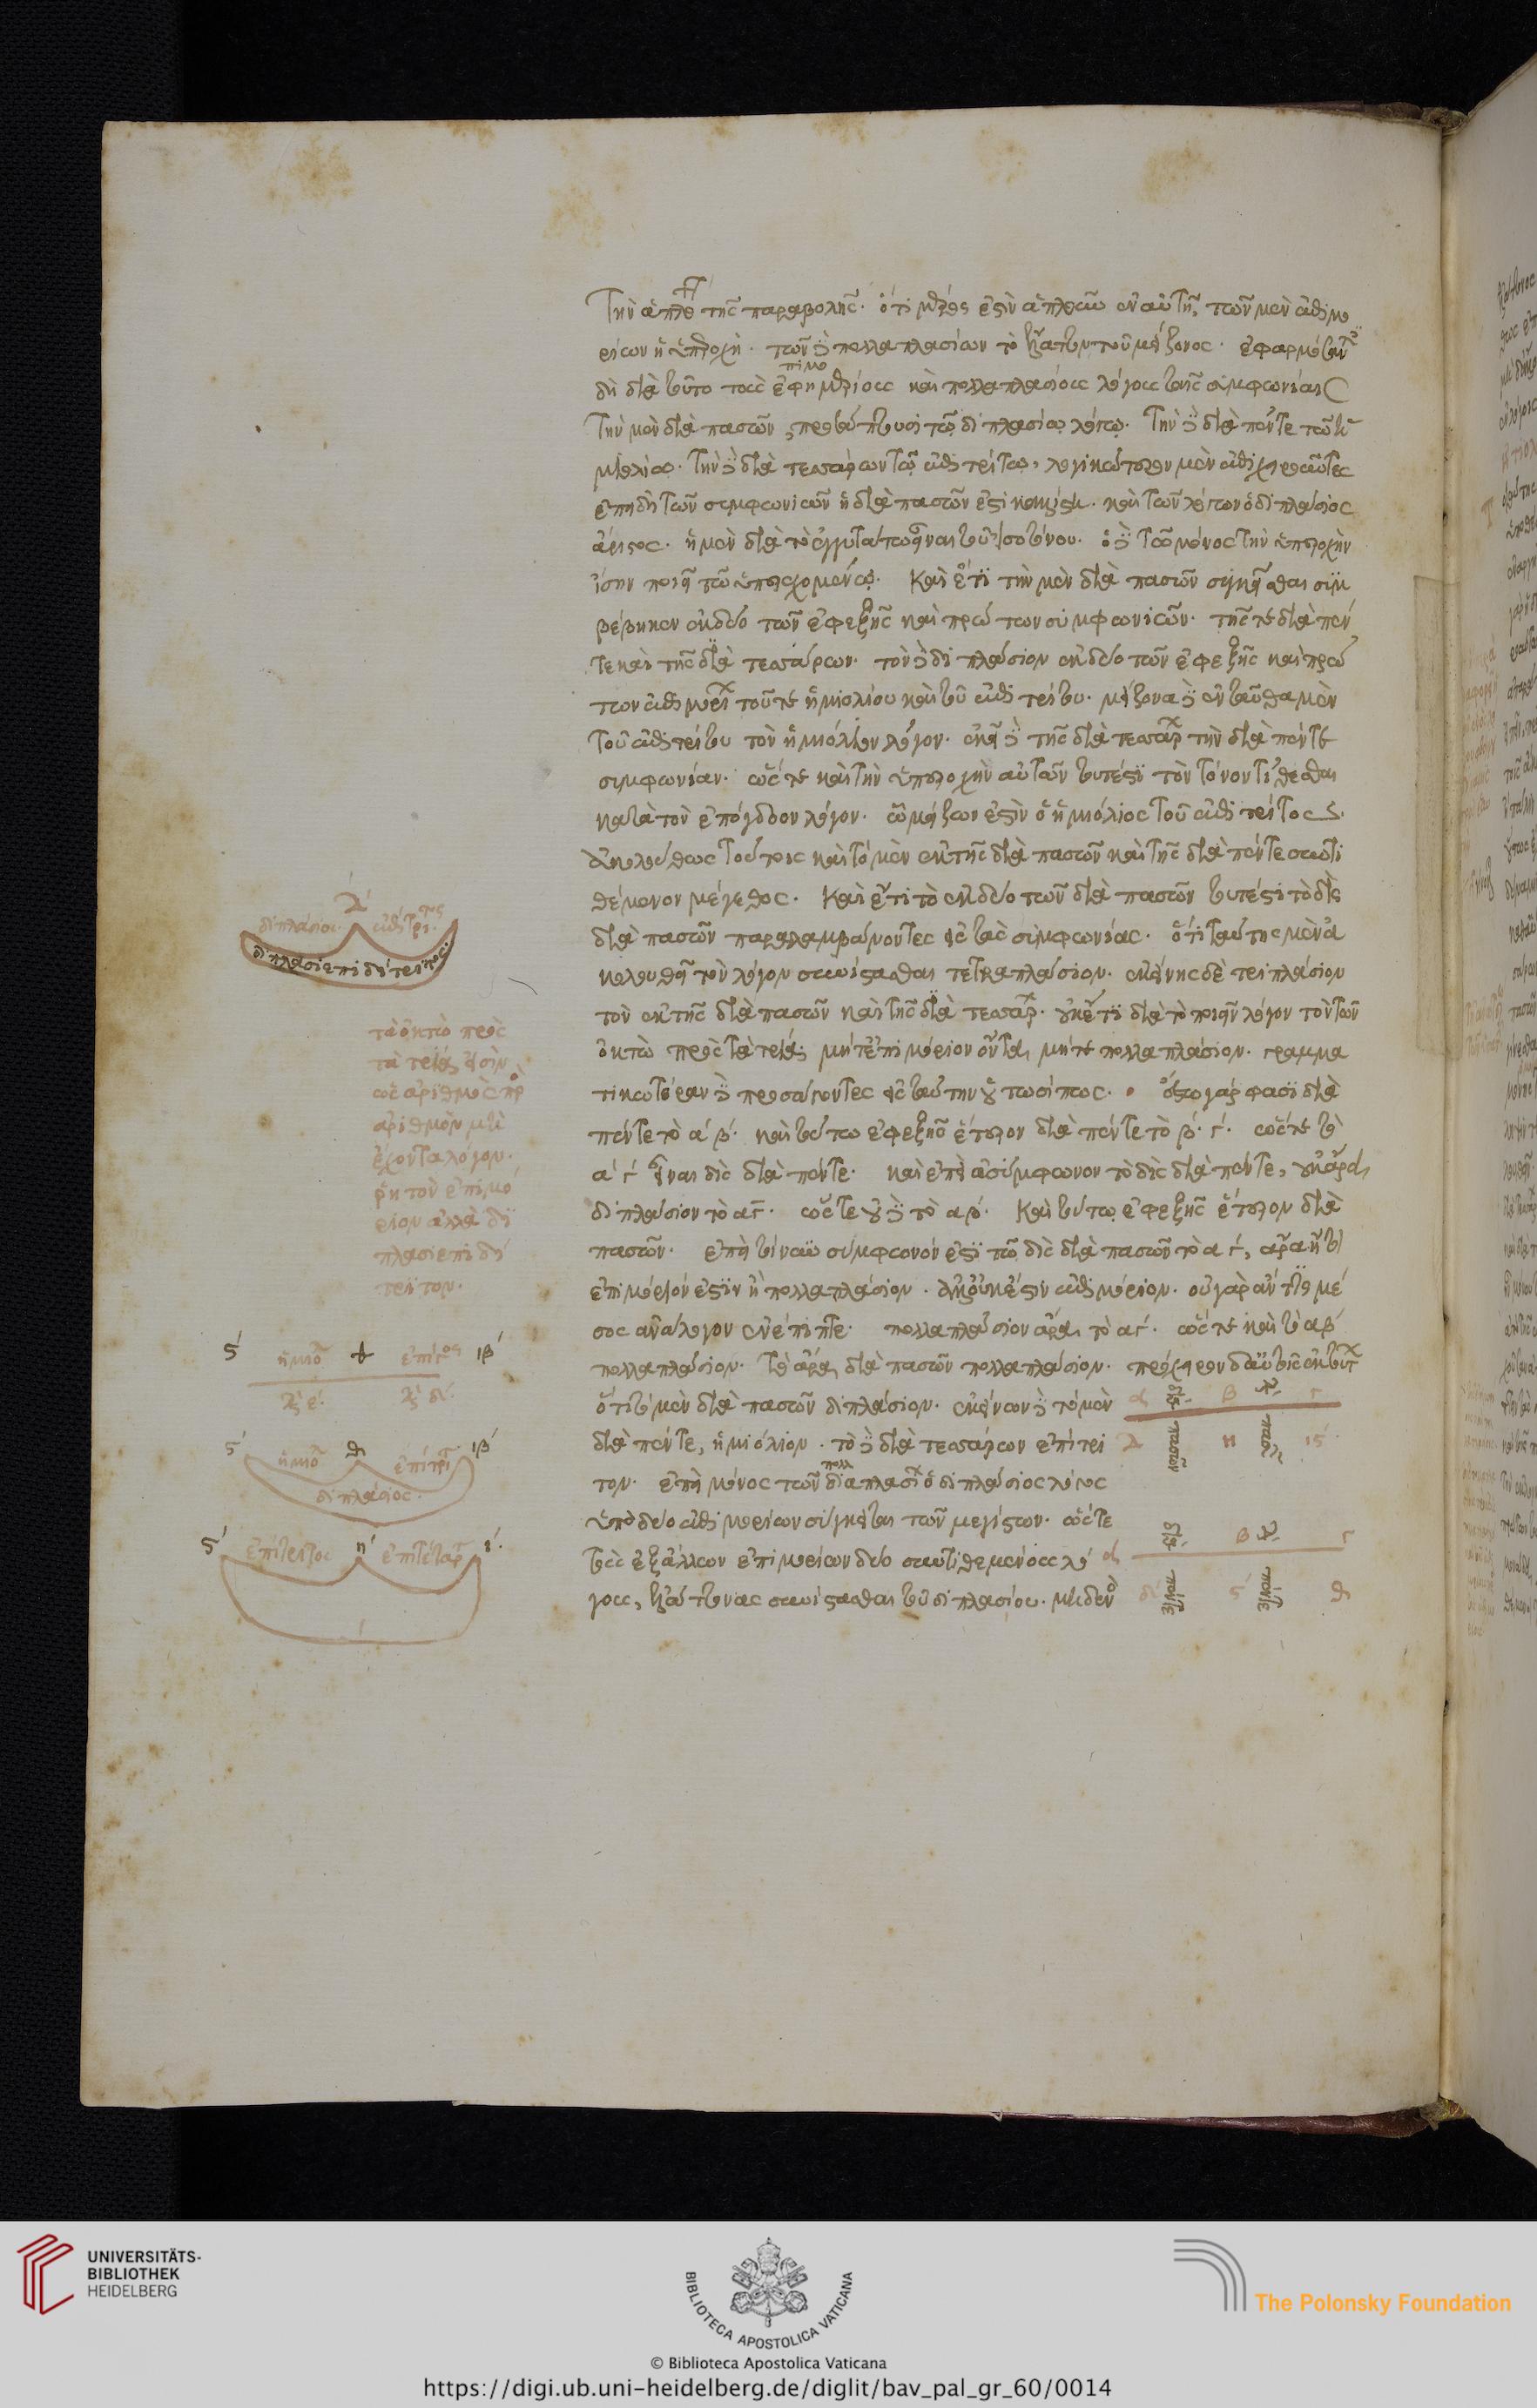 Τὴν ἁπλό τῆς παραβολῆς· ὅτι μέρος ἐστὶν ἁπλοῦν ἐν αὐτῆ, τῶν μὲν ἐπιμο
ρίων ἡ ὑπεροχή· τῶν δὲ πολλαπλασίων τὸ ἔλαττον τοῦ μείζονος· ἐφαρμόζοντ
δὴ διὰ τοῦτο τοὺς ἐφημερίους καὶ πολλαπλασίους λόγους ταῖς συμφωνίαις
πιμο
Τὴν μὲν διὰ πασῶν, προσάπτουσι τῶ διπλασίω λόγω· τὴν δὲ διὰ πέντε τῶ ἡ
μιολίω· τὴν δὲ διὰ τεσσάρων τῶ ἐπιτρίτω, λογικώτερον μὲν ἐπιχειροῦντες
ἐπειδὴ τῶν συμφωνιῶν ἡ διὰ πασῶν ἐστὶ καλλίστη· καὶ τῶν λόγων ὁ διπλάσιος
ἄριστος· ἡ μὲν διὰ τὸ ἐγγυτάτω εἶναι τοῦ ἰσοτόνου· ὁ δὲ τῶ μόνος τὴν ὑπεροχὴν
ἴσην ποιεῖν τῶ ὑπερεχομένω. Καὶ ἔτι τὴν μὲν διὰ πασῶν συγκεῖσθαι συμ
βέβηκεν ἐκ δύο τῶν ἐφεξῆς καὶ πρώτων συμφωνιῶν· τῆς τε διὰ πέν
τε καὶ τῆς διὰ τεσσάρων· τὸν δὲ διπλάσιον ἐκ δύο τῶν ἐφεξῆς καὶ πρώ
των ἐπιμορί τοῦ τε ἡμιολίου καὶ τοῦ ἐπιτρίτου· μείζονα δὲ ἐνταῦθα μὲν
τοῦ ἐπιτρίτου τὸν ἡμιόλιον λόγον· ἐκεῖ δὲ τῆς διὰ τεσσάρ τὴν διὰ πέντε
συμφωνίαν· ὥστε καὶ τὴν ὑπεροχὴν αὐτῶν τουτέστι τὸν τόνον τίθεσθαι
κατὰ τὸν ἐπόγδοον λόγον· ὧ μείζων ἐστὶν ὁ ἡμιόλιος τοῦ ἐπιτρίτος.
ἀκολούθως τούτοις καὶ τὸ μὲν ἐκ τῆς διὰ πασῶν καὶ τῆς διὰ πέντε συντι
θέμενον μέγεθος. Καὶ ἔτι τὸ ἐκ δύο τῶν διὰ πασῶν τουτέστι τὸ δὶς
διὰ πασῶν παραλαμβάνοντες εἰς τὰς συμφωνίας· ὅτι ταύτης μὲν ἀ
κολουθεῖ τὸν λόγον συνίστασθαι τετραπλάσιον· ἐκείνης δὲ τριπλάσιον
τὸν ἐκ τῆς διὰ πασῶν καὶ τῆς διὰ τεσσάρ· οὐκέτι διὰ τὸ ποιεῖν λόγον τὸν τῶν
ὀκτὼ πρὸς τὰ τρία· μήτ' ἐπιμόριον ὄντα, μήτε πολλαπλάσιον· γραμμα
τικωτέραν δὲ προσάγοντες εἰς ταύτην οὕτωσί πως· ἔστω γάρ φασι διὰ
πέντε τὸ α β· καὶ τούτω ἐφεξῆς ἕτερον διὰ πέντε τὸ β· γ· ὥστε τὸ
α γ εἶναι δὶς διὰ πέντε· καὶ ἐπεὶ ἀσύμφωνον τὸ δὶς διὰ πέντε, οὐκ ἄρα
διπλάσιον τὸ αγ· ὥστε οὐδὲ τὸ αβ· Καὶ τούτω ἐφεξῆς ἕτερον διὰ
πασῶν· ἐπεὶ σύμφωνόν ἐστι τὸ δὶς διὰ πασῶν τὸ α γ, ἄρα ἢ
ἐπιμόριόν ἐστιν ἢ πολλαπλάσιον· ἀλλ' οὐκ ἔστιν ἐπιμόριον· οὐ γὰρ ἂν τις μέ
σος ἀνάλογον ἐνέπιπτε· πολλαπλάσιον ἄρα τὸ αγ· ὥστε καὶ τὸ αβ
πολλαπλάσιον· τὸ ἄρα διὰ πασῶν πολλαπλάσιον· πρόχειρον δ' αὐτοῖς ἐκ τούτ
ὅτι τὸ μὲν διὰ πασῶν διπλάσιον· ἐκείνων δὲ τὸ μὲν
διὰ πέντε, ἡμιόλιον· τὸ δὲ διὰ τεσσάρων ἐπίτρι
τον· ἐπεὶ μόνος τῶν διαπλασί ὁ διπλάσιος λόγος
πολλ
ὑπὸ δύο ἐπιμορίων σύγκειται τῶν μεγίστων· ὥστε
τοὺς ἐξ ἄλλων ἐπιμορίων δύο συντιθεμένους λό
γους, ἐλάττονας συνίστασθαι τοῦ διπλασίου· μηδενὸ
διπλάσιος ἐπίτρι
διπλασιεπιδίτριτος
τὰ ὀκτὼ πρὸς
τὰ τρία, εἰσὶν
ὡς ἀριθμὸς πρ
ἀριθμὸν μὴ
ἔχοντα λόγον·
ἢ τὸν ἐπιμό
ριον ἀλλὰ δι
πλασιεπιδί
τριτον·
ϛ ἡμιό θ ἐπίτ ιβ
ϛ ἡμιό θ ἐπίτρι ιβ
διπλάσιος
ϛ ἐπίτριτος η ἐπιτέταρ ι
α διὰ β διὰ γ
δ πασῶν η πασῶν ιϛ
α διὰ β διὰ γ
δ πέντε ϛ πέντε θ
UNIVERSITÄTS-
BIBLIOTHEK
HEIDELBERG
BIBLIOTECA APOSTOLICA VATICANA
© Biblioteca Apostolica Vaticana
The Polonsky Foundation
https://digi.ub.uni-heidelberg.de/diglit/bav_pal_gr_60/0014